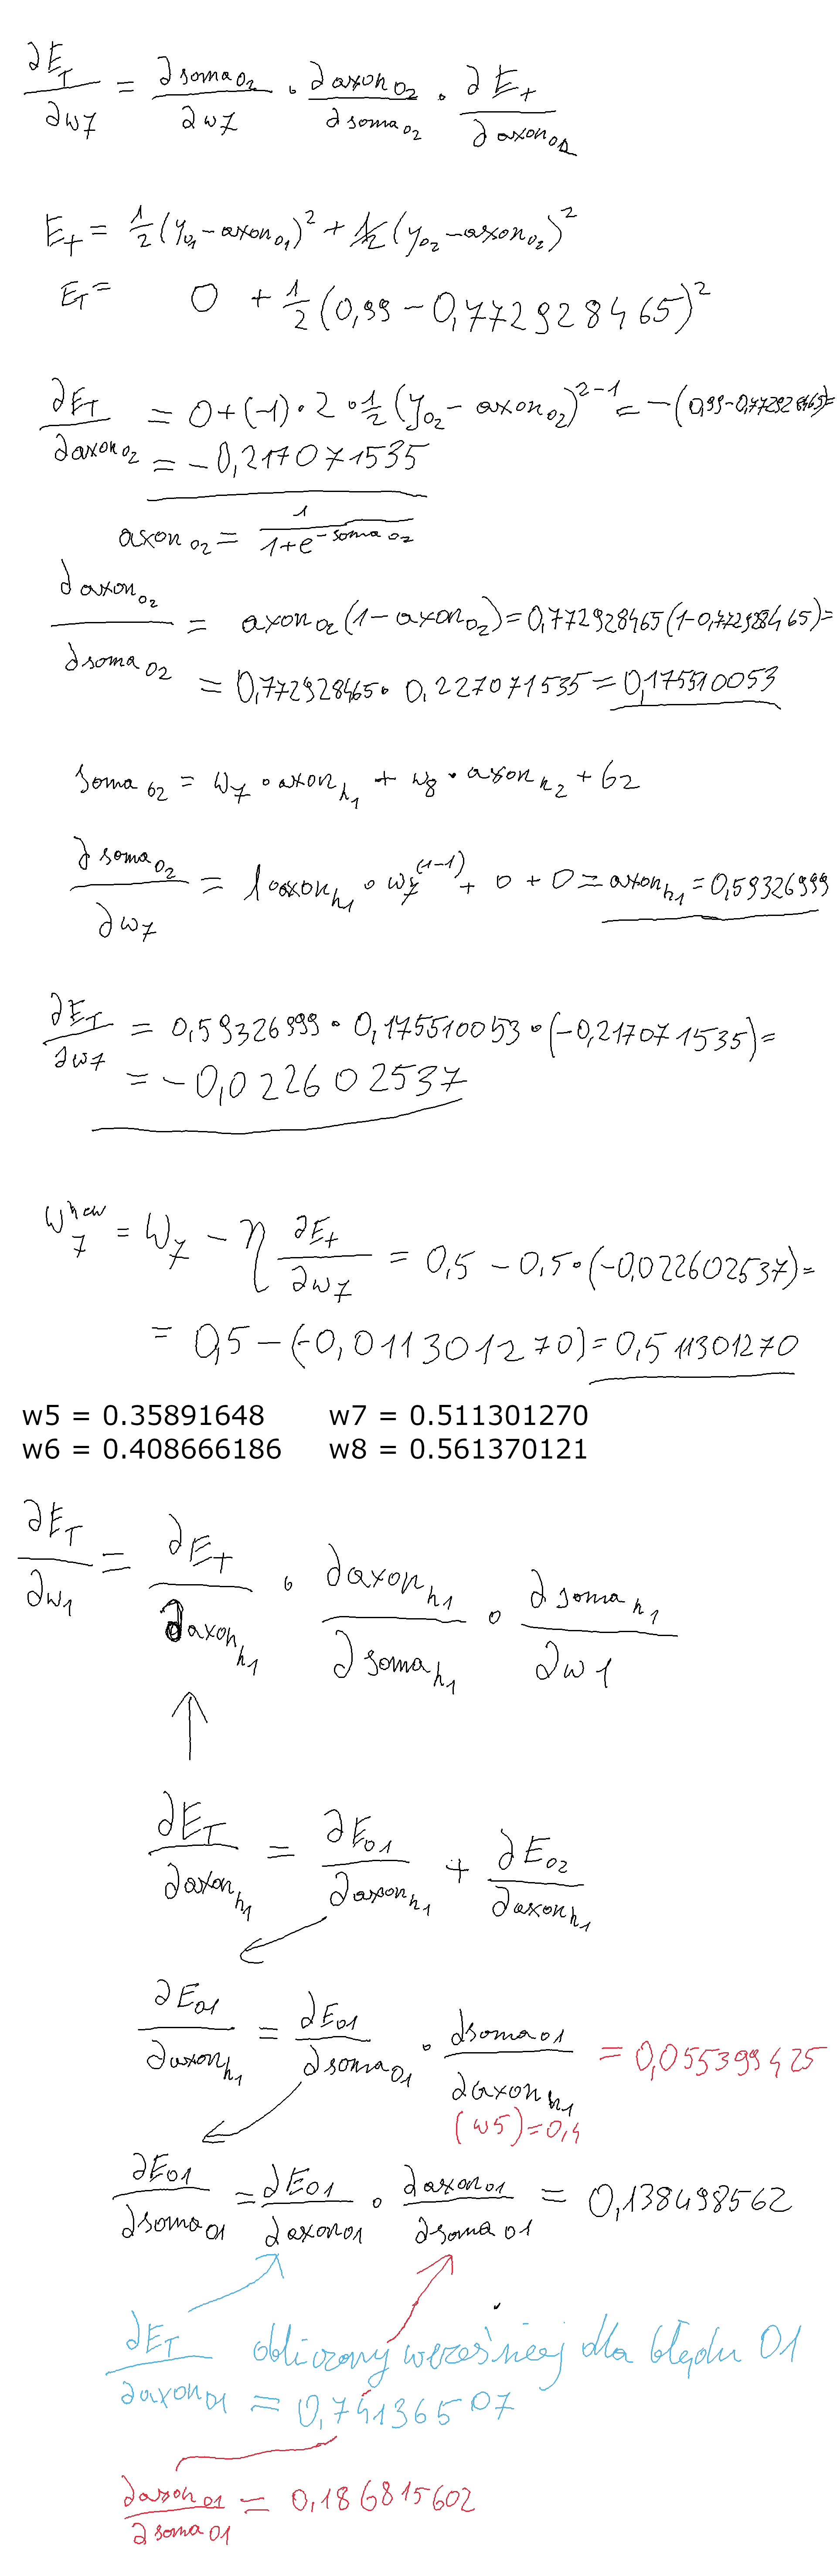 ∂E_T/∂w7 = ∂soma_o2/∂w7 · ∂axon_o2/∂soma_o2 · ∂E_t/∂axon_o2
E_t = 1/2(y_o1 - axon_o1)^2 + 1/2(y_o2 - axon_o2)^2
E_T = 0 + 1/2(0,99 - 0,772928465)^2
∂E_T/∂axon_o2 = 0+(-1)·2·1/2(y_o2 - axon_o2)^2-1 = -(0,99-0,772928465)=
= -0,217071535
axon_o2 = 1/(1+e^-soma_o2)
∂axon_o2/∂soma_o2 = axon_o2(1-axon_o2)=0,772928465(1-0,772928465)=
= 0,772928465·0,227071535=0,175510053
soma_o2 = w7·axon_h1 + w8·axon_h2 + b2
∂soma_o2/∂w7 = 1·axon_h1·w7^(1-1) + 0 + 0 = axon_h1 = 0,59326999
∂E_T/∂w7 = 0,59326999·0,175510053·(-0,217071535)=
= -0,022602537
w7^new = w7 - η ∂E_t/∂w7 = 0,5 - 0,5·(-0,022602537)=
= 0,5-(-0,011301270)=0,511301270
w5 = 0.35891648 w7 = 0.511301270
w6 = 0.408666186 w8 = 0.561370121
∂E_T/∂w1 = ∂E_T/∂axon_h1 · ∂axon_h1/∂soma_h1 · ∂soma_h1/∂w1
∂E_T/∂axon_h1 = ∂E_o1/∂axon_h1 + ∂E_o2/∂axon_h1
∂E_o1/∂axon_h1 = ∂E_o1/∂soma_o1 · ∂soma_o1/∂axon_h1 = 0,055399425
(w5)=0,4
∂E_o1/∂soma_o1 = ∂E_o1/∂axon_o1 · ∂axon_o1/∂soma_o1 = 0,138498562
∂E_T/∂axon_o1 obliczony wcześniej dla błędu O1
= 0,74136507
∂axon_o1/∂soma_o1 = 0,186815602